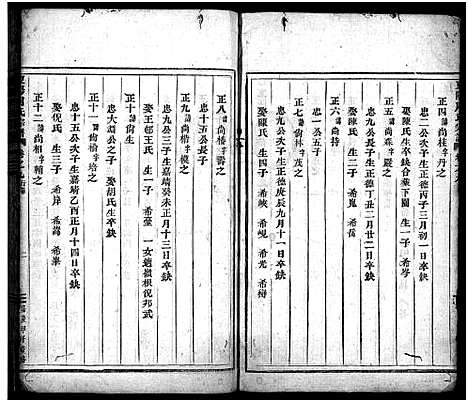 正四諱尚桂字丹之
忠二公次子生正德丙子三月初一日卒缺
娶陳氏生卒缺合葬下園 生一子 希岑
正五諱尚森字嚴之
忠九公長子生正德丁丑二月廿二日卒缺
娶陳氏 生二子 希嵬 希岱
正六諱尚持
忠一公五子
正七諱尚林字茂之
忠九公次子生正德庚辰九月十一日卒缺
娶陳氏 生四子 希峻 希峴 希光 希梅
正八諱尚椿字壽之
忠十五公長子
正九諱尚楷字模之
忠九公三子生嘉靖癸未正月十三日卒缺
娶王都王氏 生一子 希巒 一女適嶺根倪邦武
正十諱尚生
忠大淵公之子 娶胡氏生卒缺
正十一諱尚榆字培之
忠十五公次子生嘉靖乙酉正月十四日卒缺
娶倪氏 生三子 希岸 希嵩 希峯
正十二諱尚相字輔之